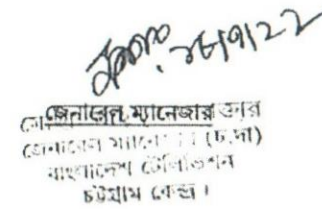 ২৮/৭/২২
জেনারেল ম্যানেজার
জেনারেল ম্যানেজার (চ.দা)
বাংলাদেশ টেলিভিশন
চট্টগ্রাম কেন্দ্র।